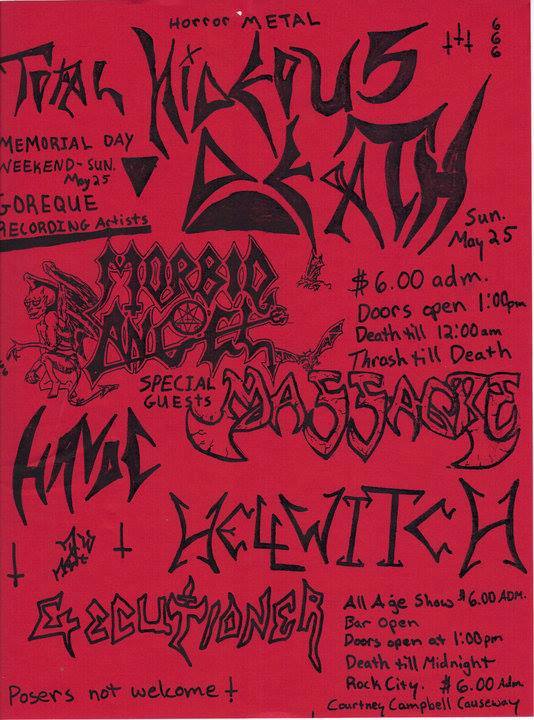 Horror METAL
666
TOTAL HIDEOUS
DEATH
MEMORIAL DAY
WEEKEND-SUN.
May 25
GOREQUE
RECORDING Artists
Sun.
May 25
MORBID
ANGEL
$6.00 adm.
Doors open 1:00pm
Death till 12:00am
Thrash till Death
SPECIAL
GUESTS
MASSACRE
HAVOC
HELLWITCH
EXECUTIONER
All Age Show $6.00 ADM.
Bar Open
Doors open at 1:00pm
Death till Midnight
Rock City. $6.00 Adm
Courtney Campbell Causeway
Posers not welcome!